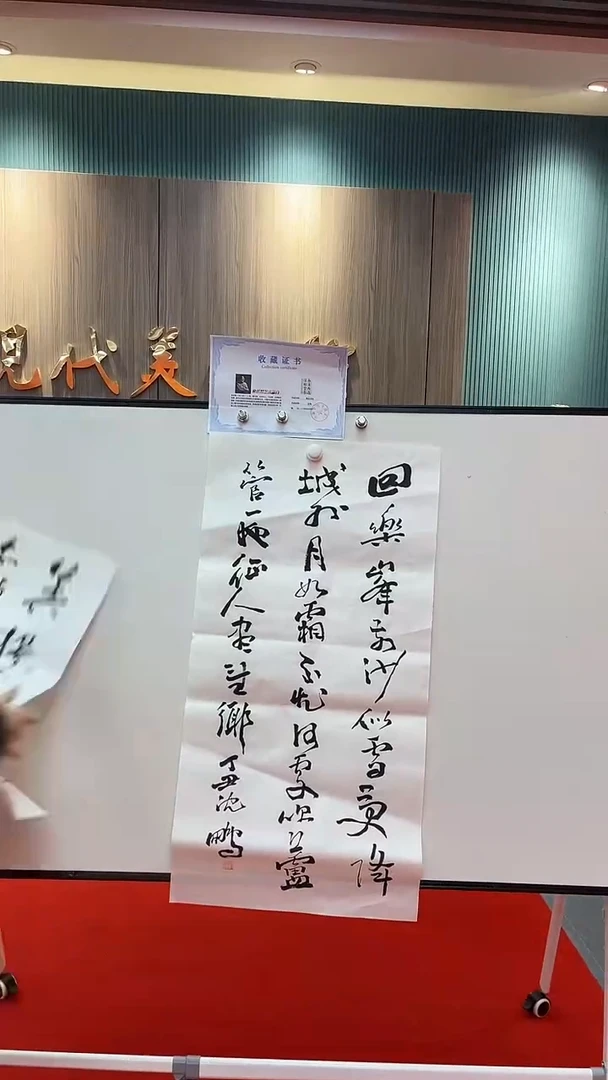 现代美
收藏证书
Collection certificate
回樂峯前沙似雪受降
城外月如霜不知何處吹蘆
管一夜征人盡望鄉 丁丑沈鵬